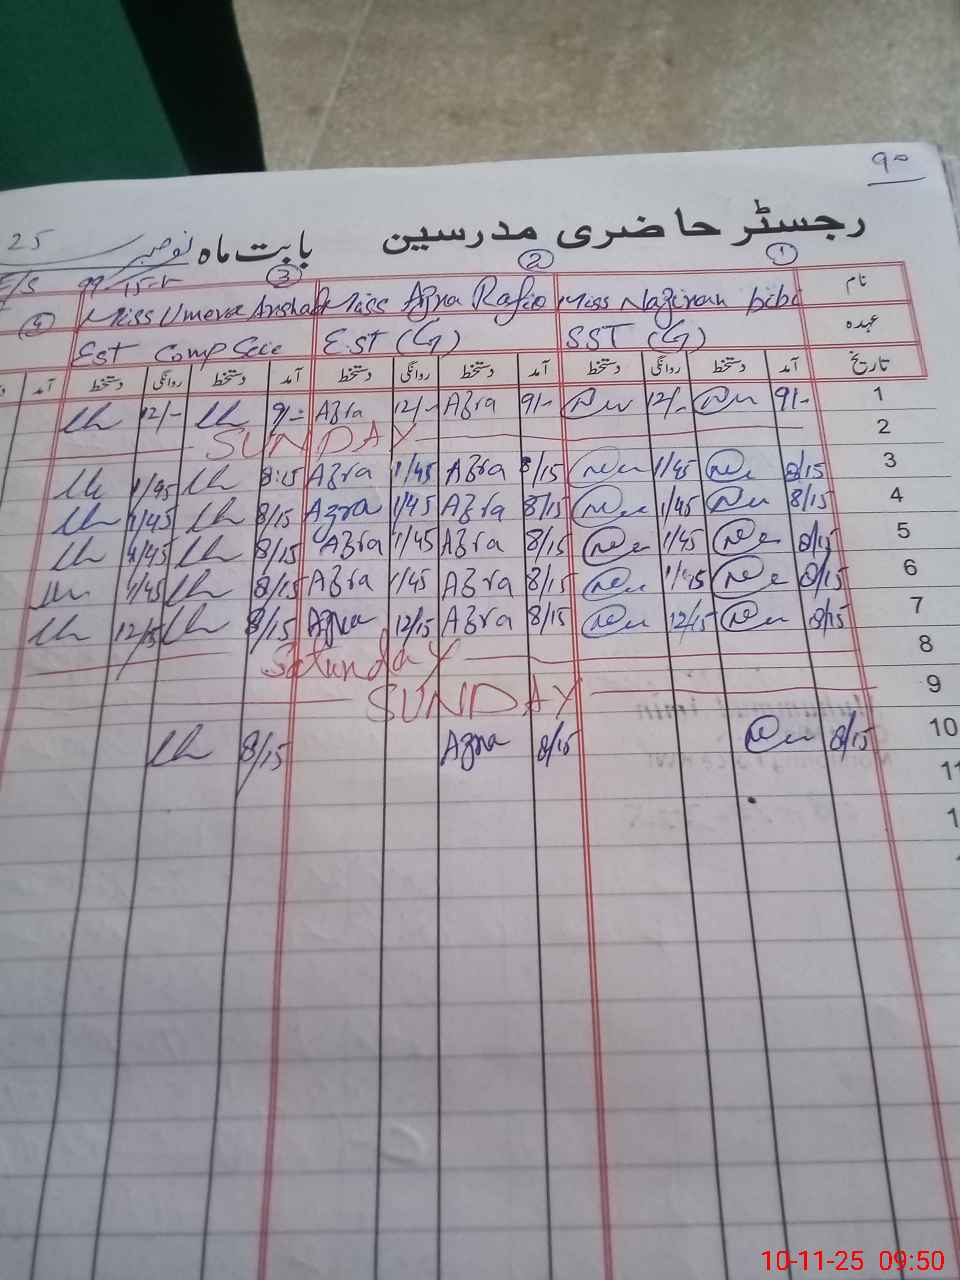 ۹۰
رجسٹر حاضری مدرسین بابت ماہ نومبر 25
نام ① Miss Naziran bibi ② Miss Azra Rafiq ③ Miss Umera Arshad ④
عہدہ SST (G) EST (G) Est Comp Scie
تاریخ آمد دستخط روانگی دستخط آمد دستخط روانگی دستخط آمد دستخط روانگی دستخط آمد
1 9/- 12/- 9/- Azra 12/- Azra 9/- 12/-
2 SUNDAY
3 8/15 1/45 8/15 Azra 1/45 Azra 8:15 1/45
4 8/15 1/45 8/15 Azra 1/45 Azra 8/15 1/45
5 8/15 1/45 8/15 Azra 1/45 Azra 8/15 1/45
6 8/15 1/45 8/15 Azra 1/45 Azra 8/15 1/45
7 8/15 12/15 8/15 Azra 12/15 Azra 8/15 12/15
8 Saturday
9 SUNDAY
10 8/15 8/15 Azra 8/15
11
10-11-25 09:50